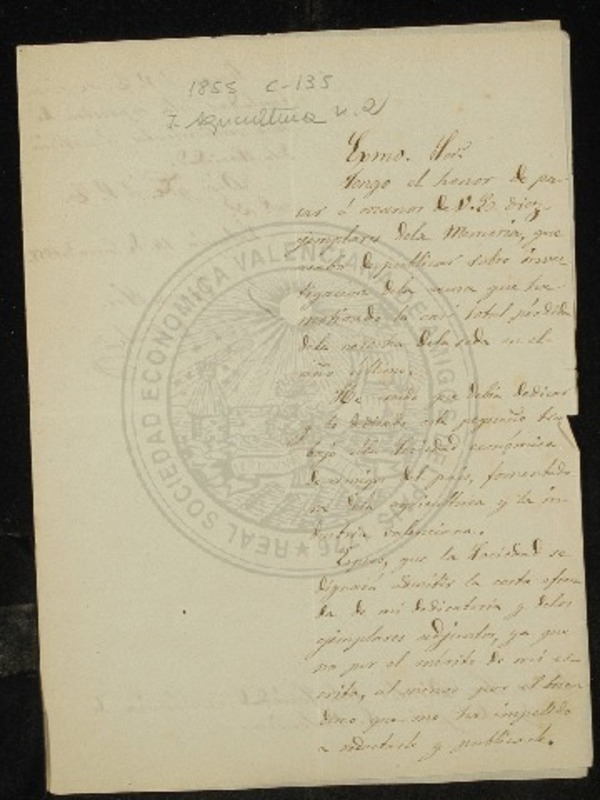 1855 C-135
I. Agricultura n. 2
Exmo. Sor.
Tengo el honor de pa-
sar á manos de V. E. diez
ejemplares dela Memoria, que
acabo de publicar sobre inves-
tigacion dela causa que ha
motivado la casi total pérdida
dela cosecha dela seda en el
año último.
He creido que debia dedicar
y he dedicado este pequeño tra-
bajo ála Sociedad económica
de amigos del pais, fomentado
ra dela agricultura y la in-
dustria valenciana.
Espero, que la Sociedad se
dignará admitir la corta ofren-
da de mi dedicatoria y delos
ejemplares adjuntos, ya que
no por el mérito de mi es-
crito, al menos por el buen
deseo que me ha impelido
a redactarle y publicarle.
REAL SOCIEDAD ECONOMICA VALENCIANA DE AMIGOS DEL PAIS
1776